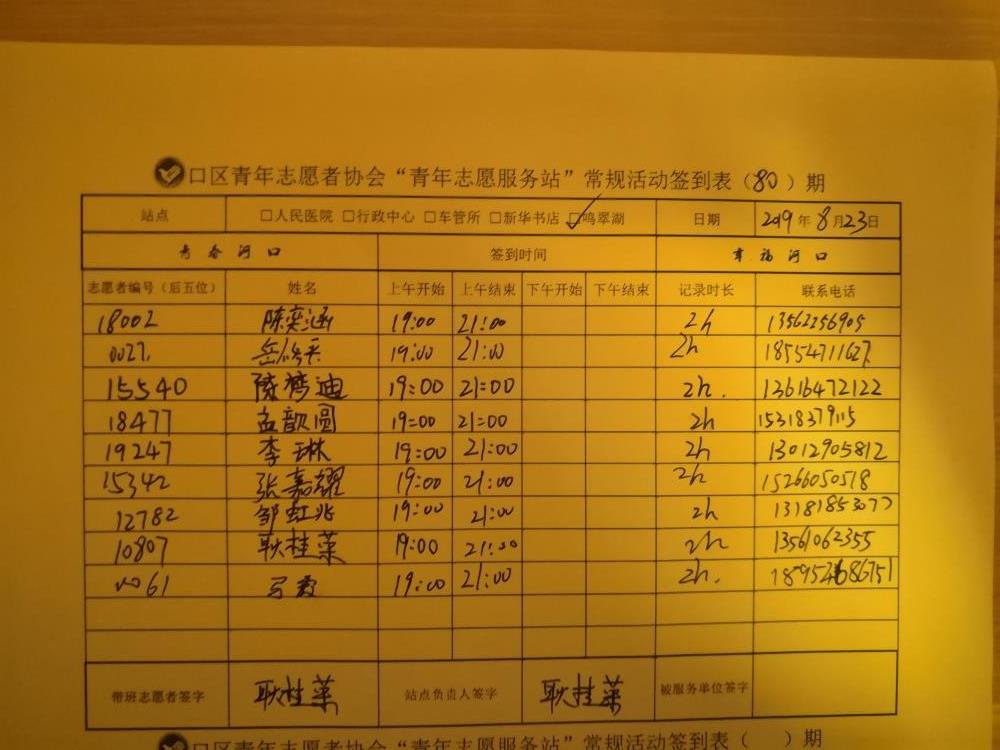 口区青年志愿者协会“青年志愿服务站”常规活动签到表（80）期
站点 □人民医院 □行政中心 □车管所 □新华书店 ☑鸣翠湖 日期 2019年8月23日
青春河口 签到时间 幸福河口
志愿者编号（后五位） 姓名 上午开始 上午结束 下午开始 下午结束 记录时长 联系电话
18002 陈奕涵 19:00 21:00 2h 13562256905
19:00 21:00 2h 18554711627
15540 陈梦迪 19:00 21:00 2h. 13616472122
18477 孟歆圆 19:00 21:00 2h 15318379115
19247 李琳 19:00 21:00 2h 13012905812
15342 张嘉耀 19:00 21:00 2h 15266050518
12782 邹虹兆 19:00 21:00 2h 13181853077
10807 耿桂菜 19:00 21:00 2h 13561062355
19:00 21:00 2h.
带班志愿者签字 耿桂菜 站点负责人签字 耿桂菜 被服务单位签字
口区青年志愿者协会“青年志愿服务站”常规活动签到表（ ）期